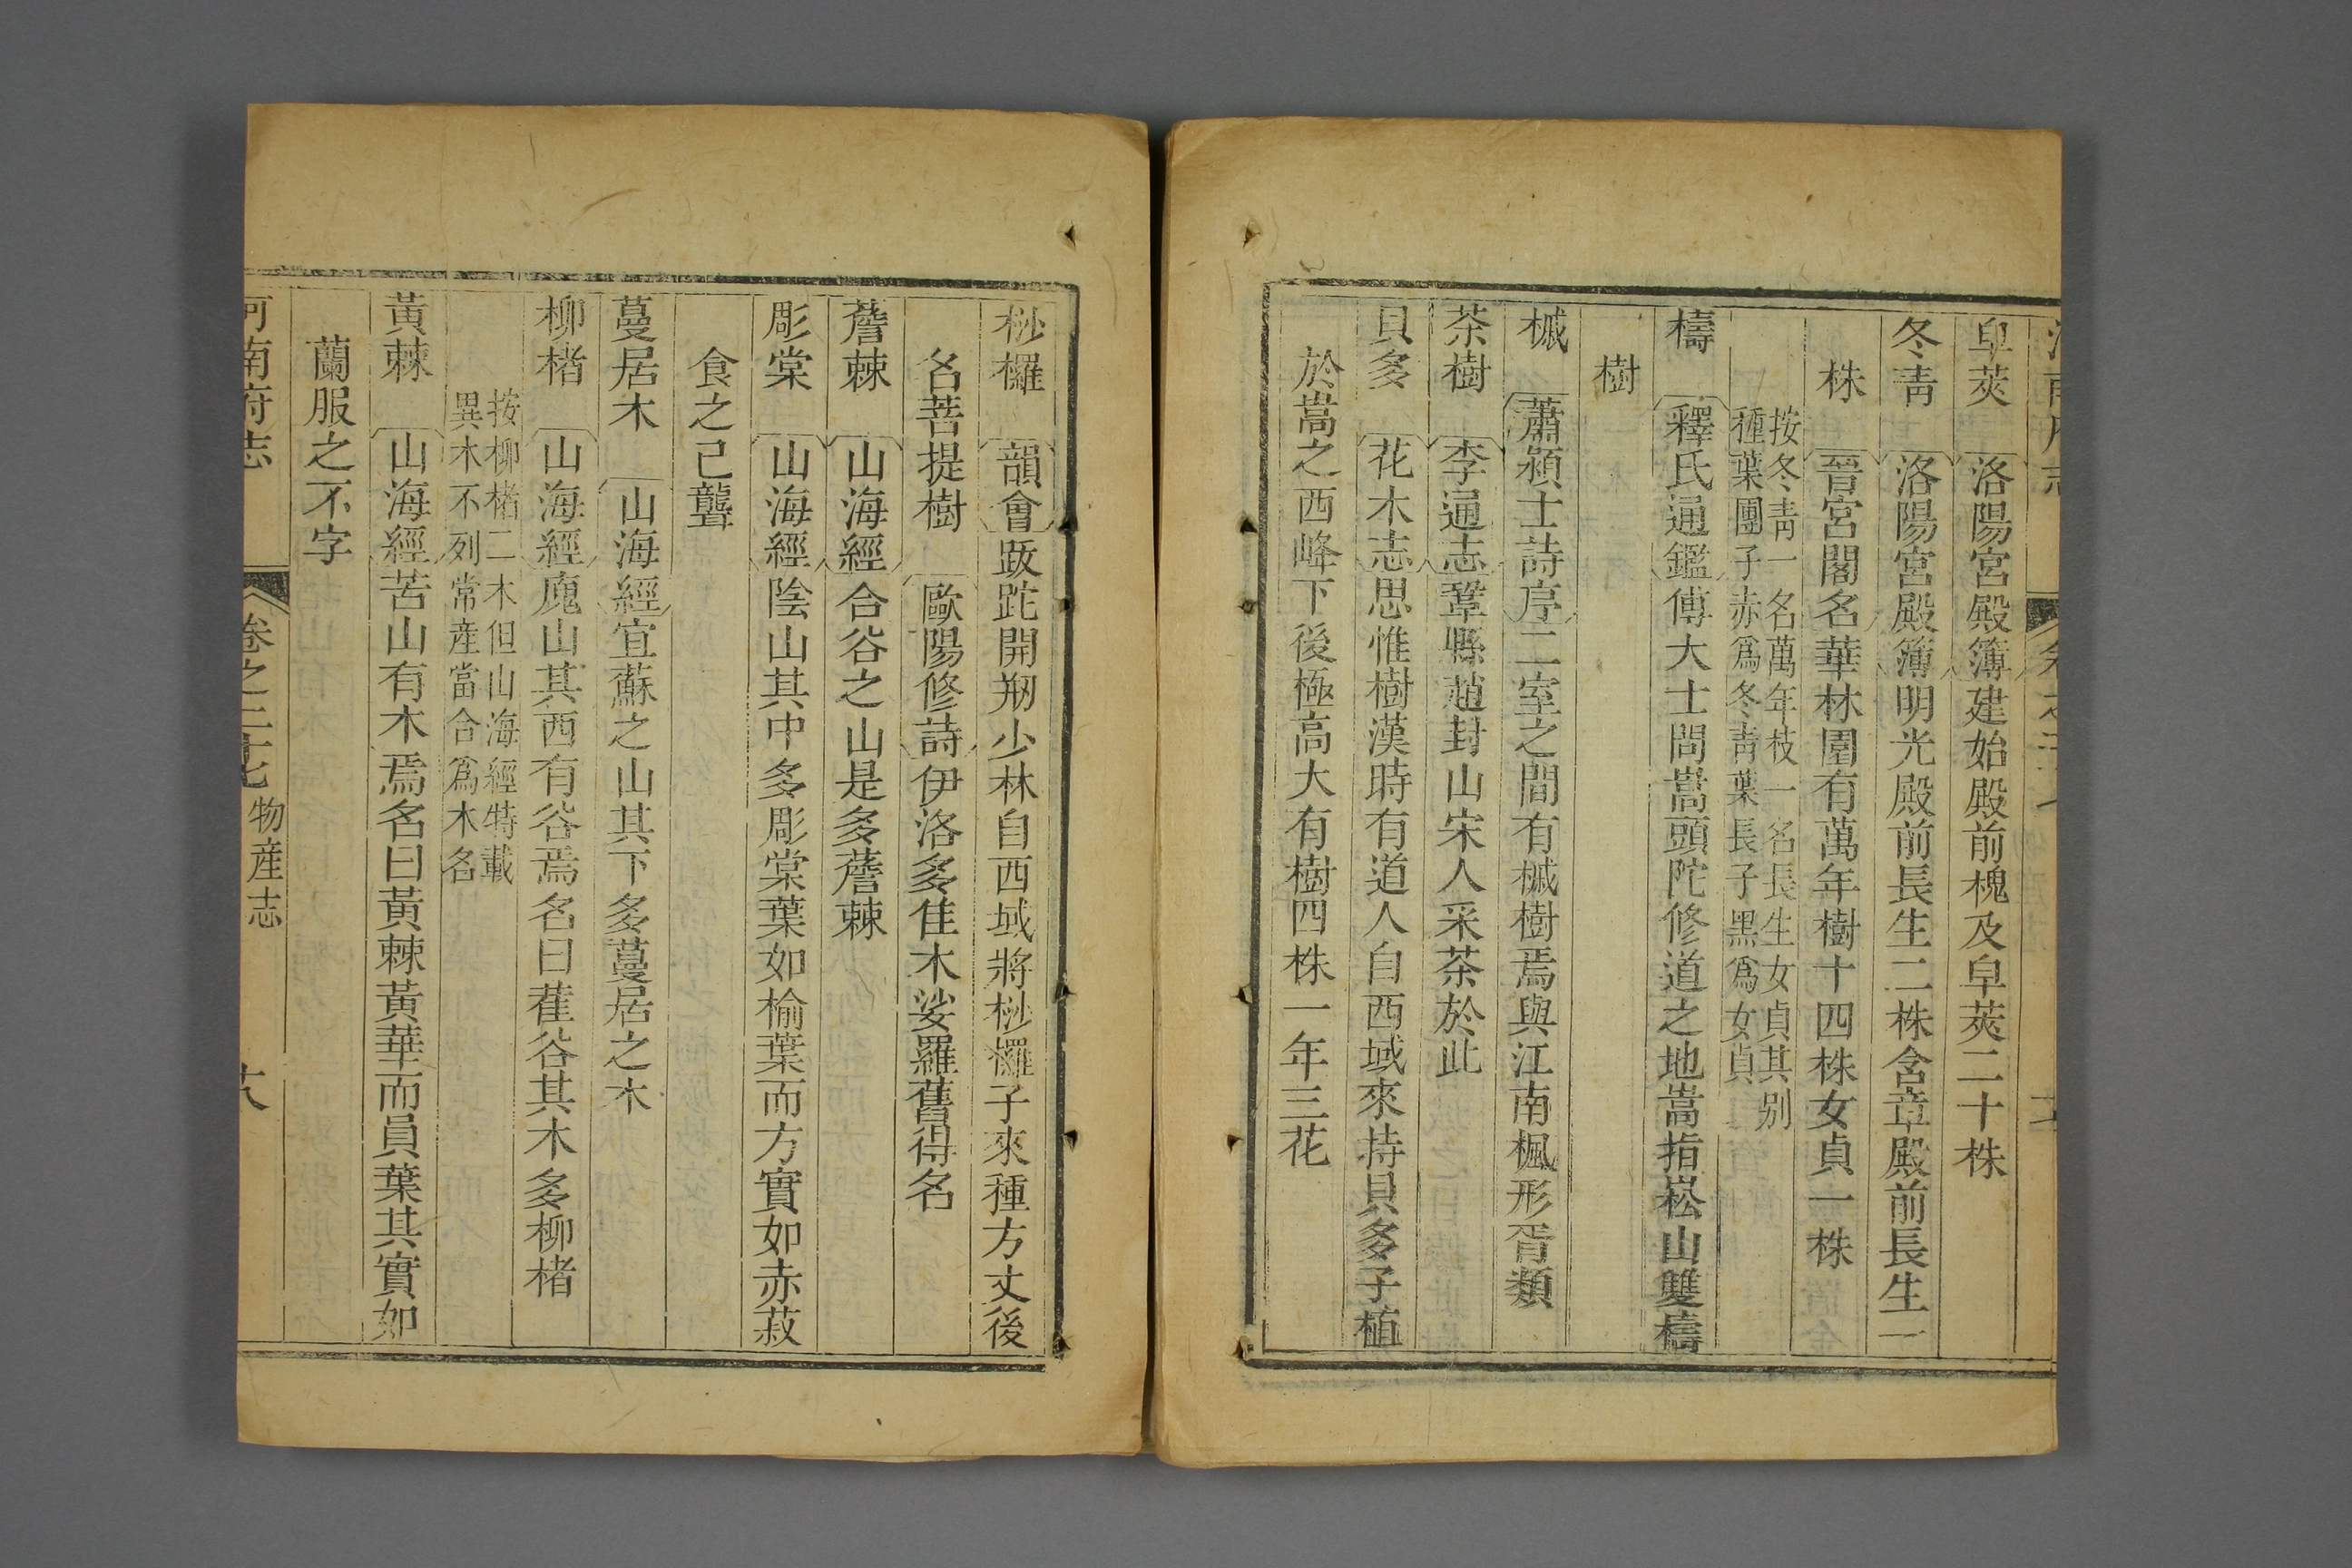 皁莢 洛陽宮殿簿建始殿前槐及皁莢二十株
冬靑 洛陽宮殿簿明光殿前長生二株含章殿前長生一
株 晉宮閣名華林園有萬年樹十四株女貞一株
按冬靑一名萬年枝一名長生女貞其别
種葉團子赤爲冬靑葉長子黑爲女貞
檮 釋氏通鑑傅大士問嵩頭陀修道之地嵩指崧山雙檮
樹
槭 蕭潁士詩序二室之間有槭樹焉與江南楓形胥類
茶樹 李通志鞏縣趙封山宋人采茶於此
貝多 花木志思惟樹漢時有道人自西域來持貝多子植
於嵩之西峰下後極高大有樹四株一年三花
桫欏 韻會跋跎開剏少林自西域將桫欏子來種方丈後
名菩提樹 歐陽修詩伊洛多佳木娑羅舊得名
蓎棘 山海經合谷之山是多蓎棘
彫棠 山海經陰山其中多彫棠葉如榆葉而方實如赤菽
食之己聾
蔓居木 山海經宜蘇之山其下多蔓居之木
柳楮 山海經䰠山其西有谷焉名曰雚谷其木多柳楮
按柳楮二木但山海經特載
異木不列常産當合爲木名
黃棘 山海經苦山有木焉名曰黃棘黃華而員葉其實如
蘭服之不字
河南府志 卷之二十七 物産志 十八